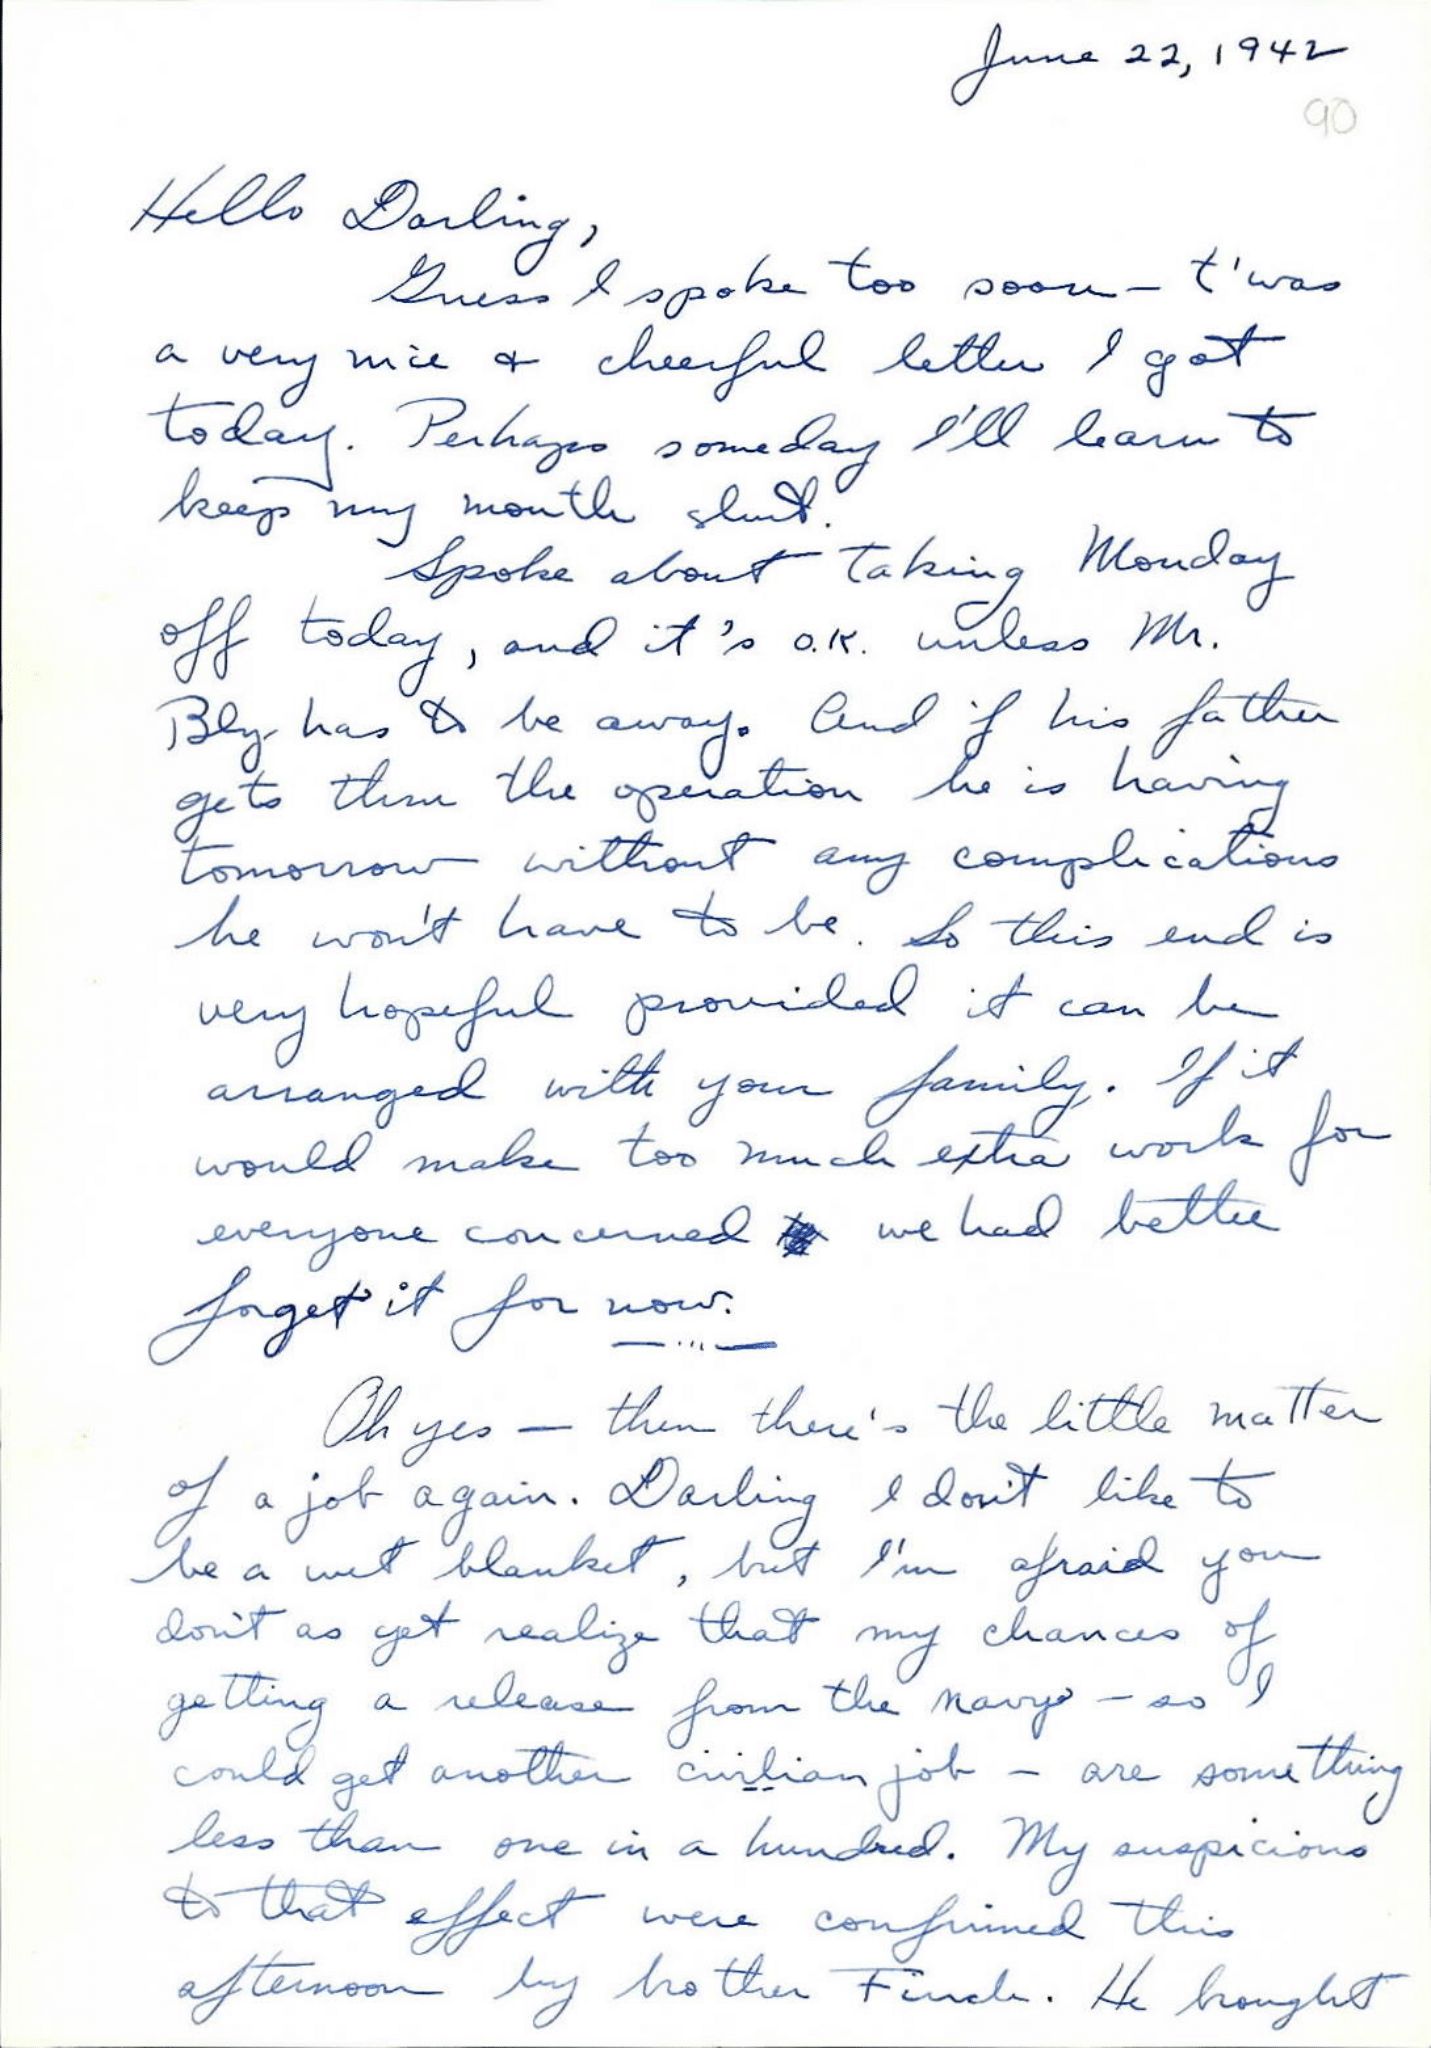 June 22, 1942
90
Hello Darling,
Guess I spoke too soon — t'was
a very nice & cheerful letter I got
today. Perhaps someday I'll learn to
keep my mouth shut.
Spoke about taking Monday
off today, and it's O.K. unless Mr.
Bly has to be away. And if his father
gets thru the operation he is having
tomorrow without any complications
he won't have to be. So this end is
very hopeful provided it can be
arranged with your family. If it
would make too much extra work for
everyone concerned we had better
forget it for now.
— ... —
Oh yes — then there's the little matter
of a job again. Darling I don't like to
be a wet blanket, but I'm afraid you
don't as yet realize that my chances of
getting a release from the navy — so I
could get another civilian job — are something
less than one in a hundred. My suspicions
to that effect were confirmed this
afternoon by brother Finch. He brought